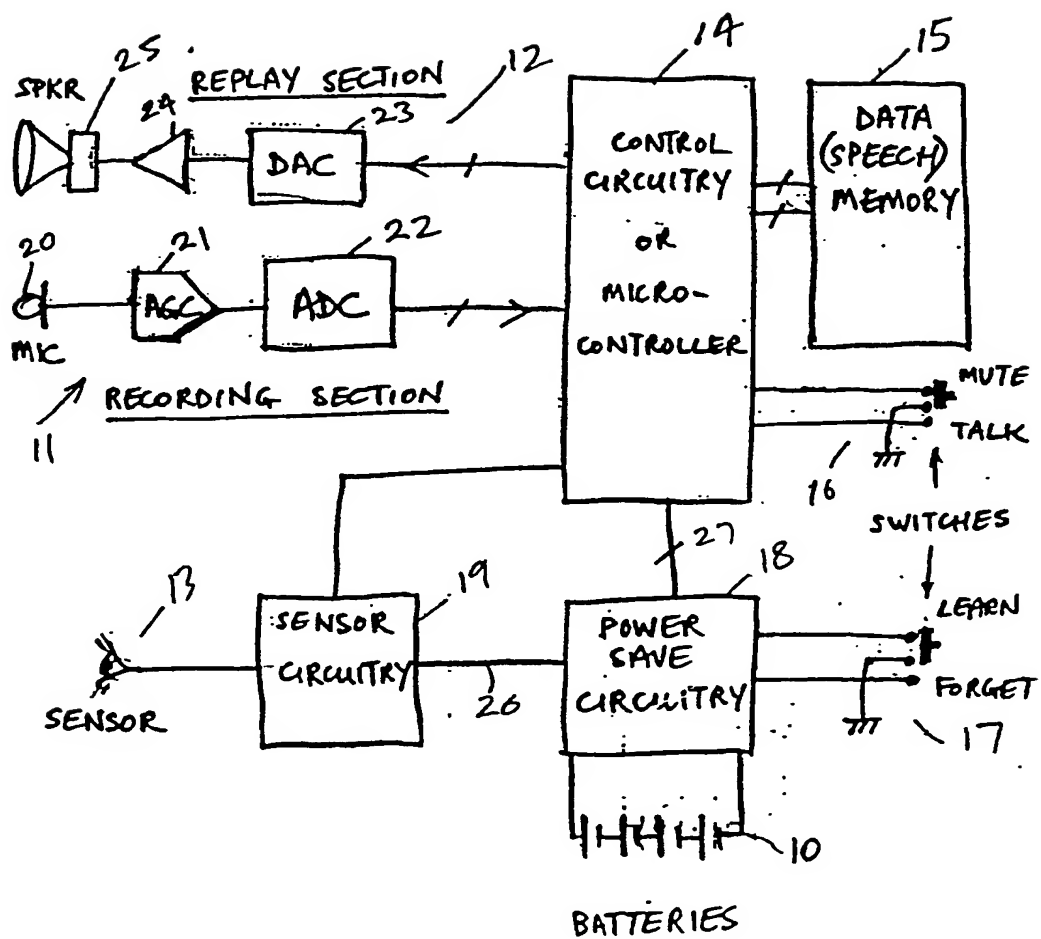 14
15
25
12
SPKR
REPLAY SECTION
24
23
DAC
CONTROL
CIRCUITRY
OR
MICRO-
CONTROLLER
DATA
(SPEECH)
MEMORY
20
21
22
AGC
ADC
MIC
11
RECORDING SECTION
MUTE
TALK
16
SWITCHES
27
13
19
18
LEARN
SENSOR
CIRCUITRY
POWER
SAVE
CIRCUITRY
26
FORGET
SENSOR
17
10
BATTERIES